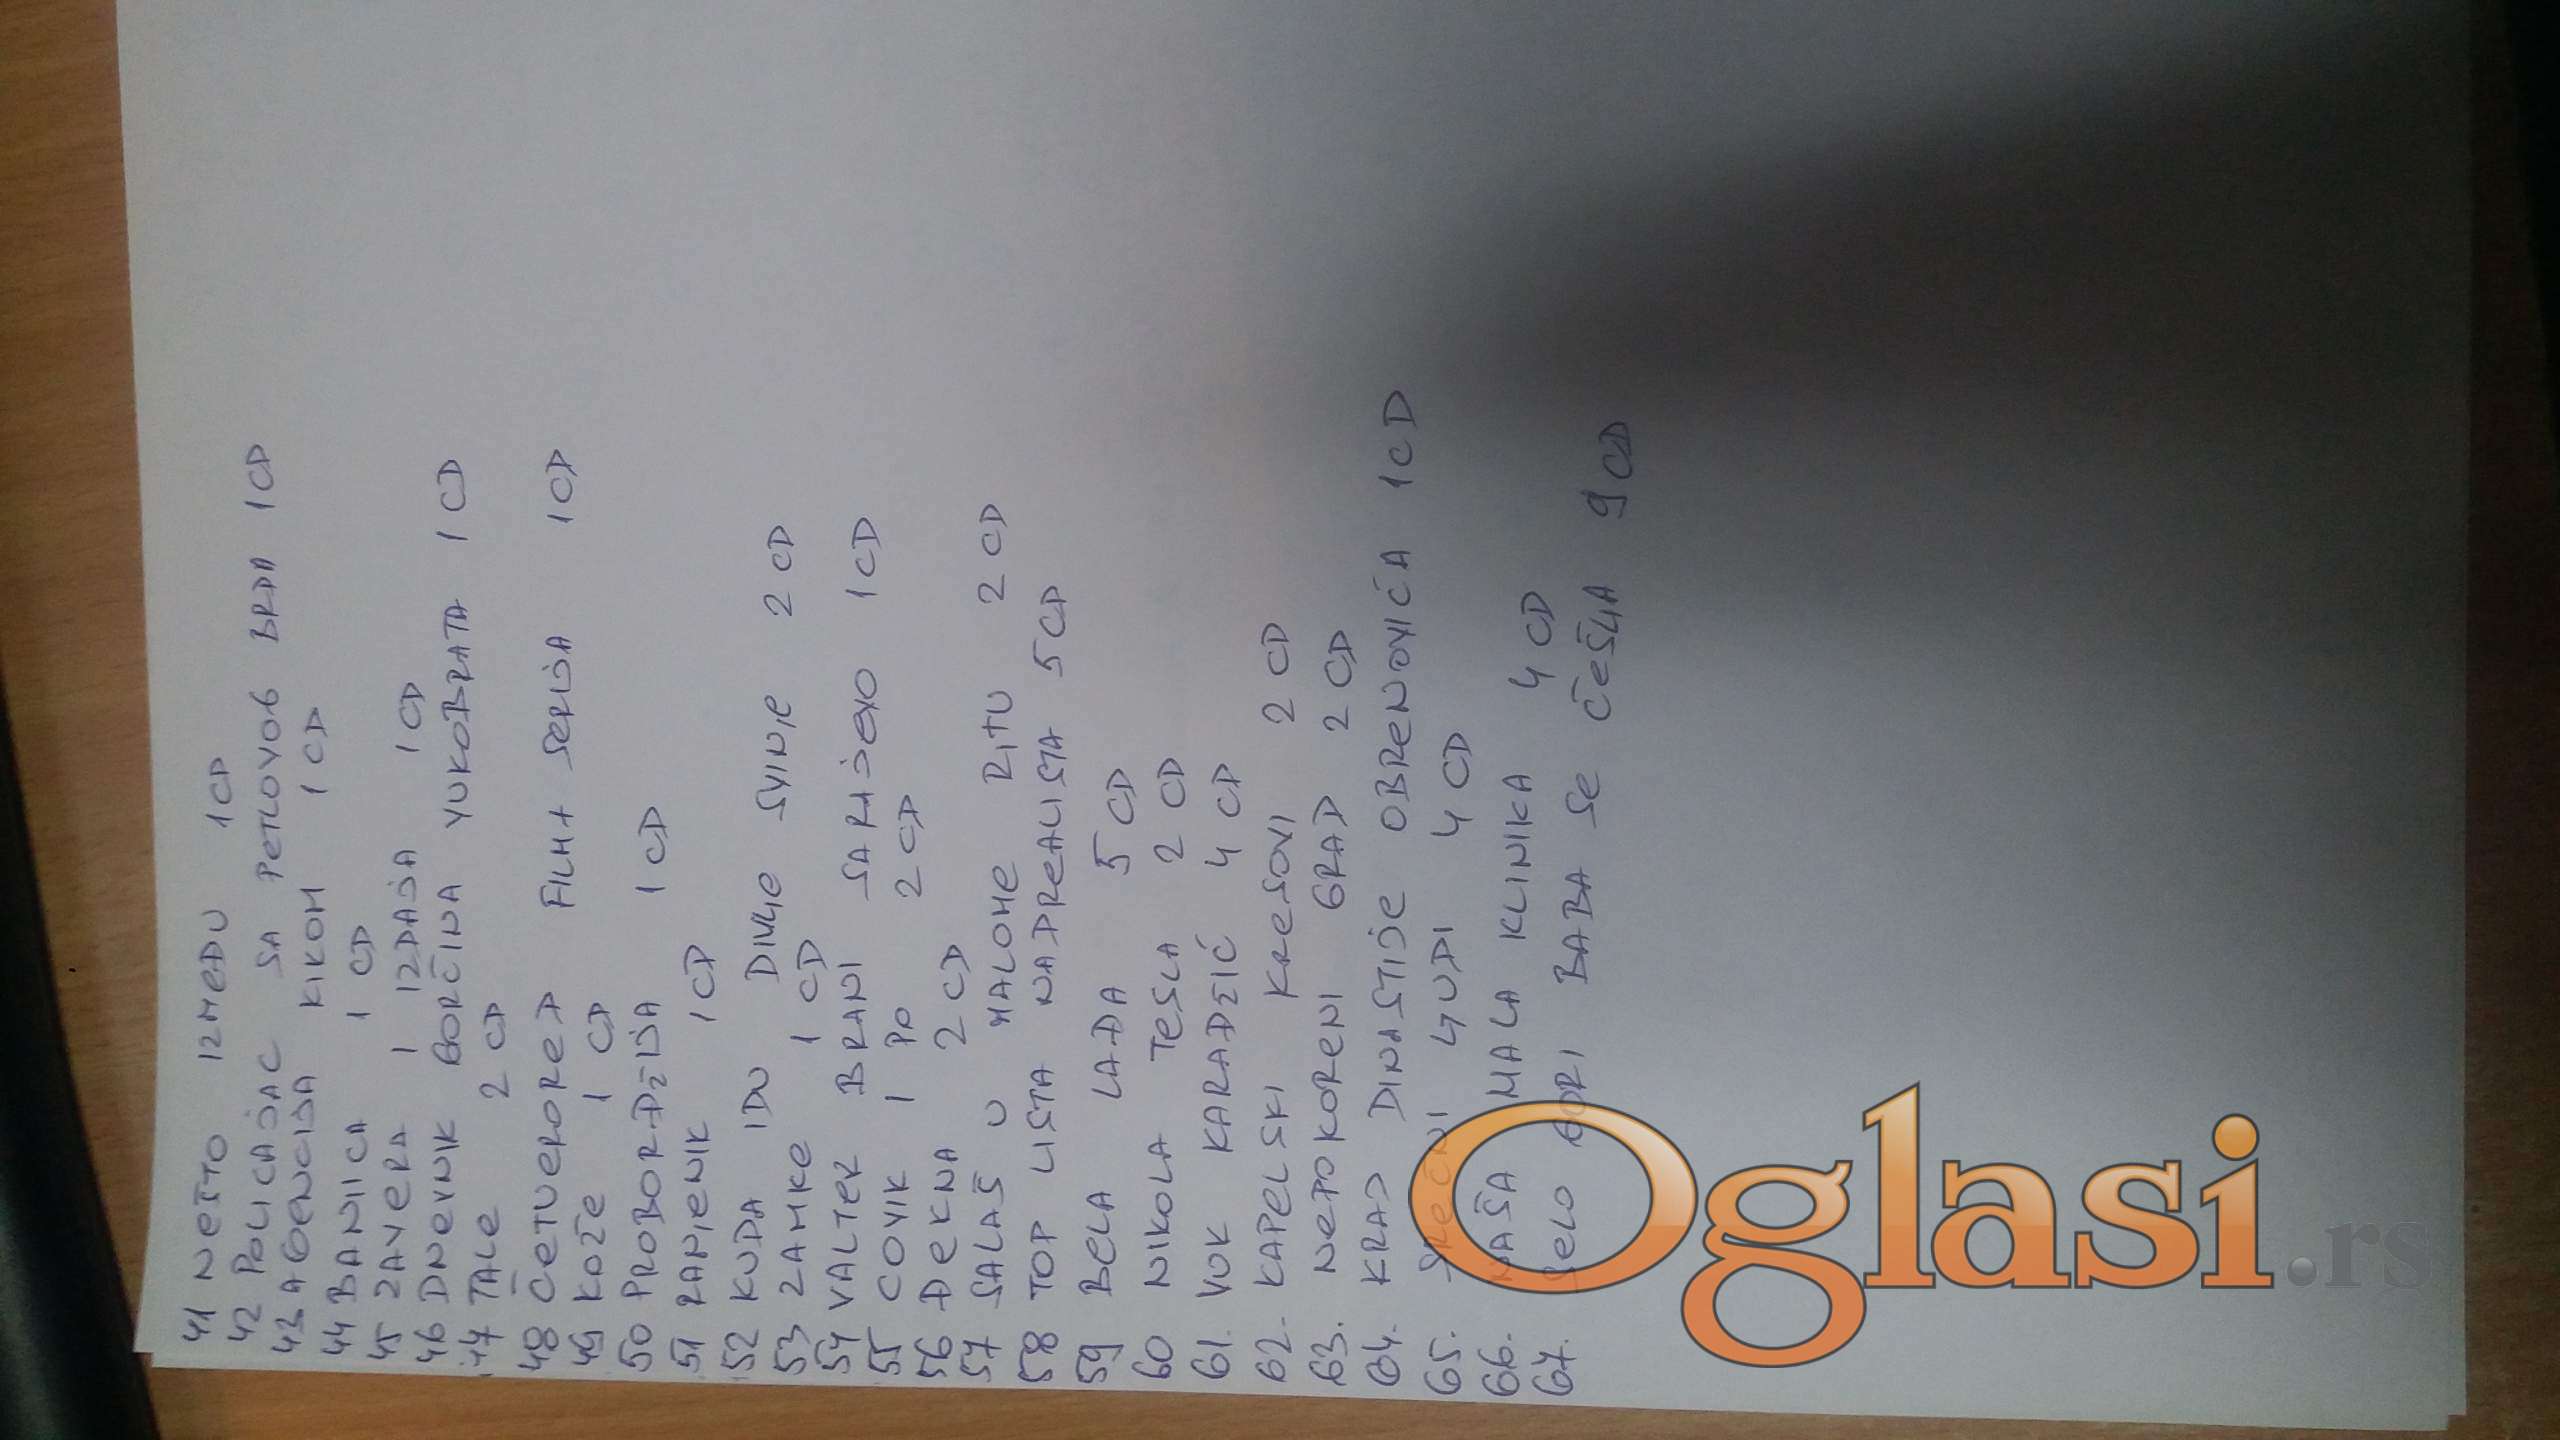 41 NEŠTO IZMEDU 1CD
42 POLICAJAC SA PETLOVOG BRDA 1CD
43 AGENCIJA KIKOM 1CD
44 BANIICA 1 CD
45 ZAVERA I IZDAJA 1CD
46 DNEVNIK GORČINA VUKOBRATA 1CD
47 TALE 2 CD
48 ČETVERORED FILM+ SERIJA 1CD
49 KOŽE 1 CD
50 PROBORDŽIJA 1CD
51 RANJENIK 1CD
52 KUDA IDU DIVLJE SVINJE 2 CD
53 ZAMKE 1 CD
54 VALTER BRANI SARAJEVO 1CD
55 COVIK I PO 2CD
56 DEKNA 2 CD
57 SALAŠ U MALOME RITU 2 CD
58 TOP LISTA NADREALISTA 5CD
59 BELA LAĐA 5 CD
60 NIKOLA TESLA 2 CD
61. VUK KARADŽIĆ 4 CD
62. KAPELSKI KRESOVI 2 CD
63. NEPOKORENI GRAD 2 CD
64. KRAJ DINASTIJE OBRENOVIĆA 1CD
65. SREĆNI LJUDI 4 CD
66. NAŠA MALA KLINIKA 4 CD
67. SELO GORI BABA SE ČEŠLJA 9CD
Oglasi.rs